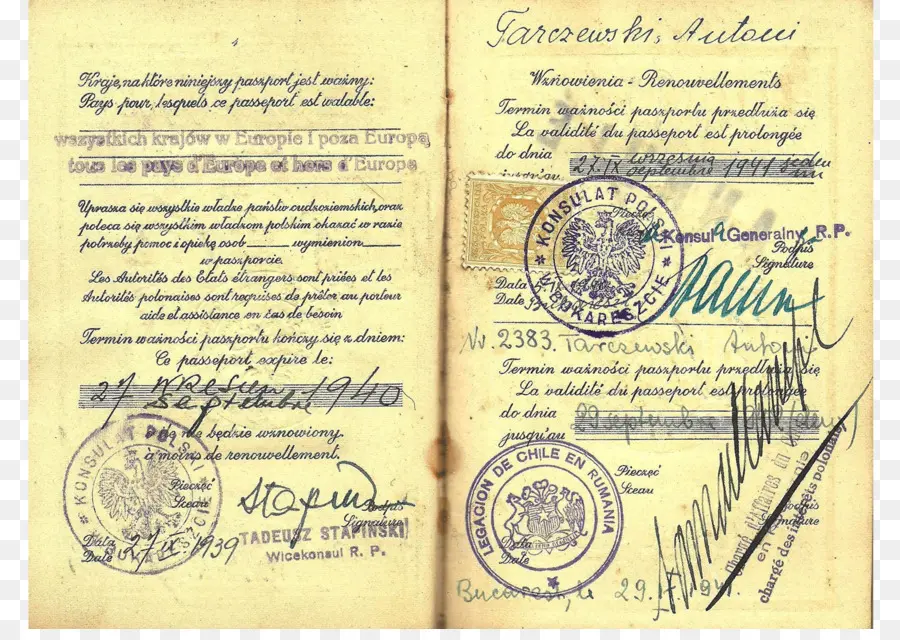 4
Kraje, na które niniejszy paszport jest ważny:
Pays pour lesquels ce passeport est walable:
wszystkich krajów w Europie i poza Europą,
tous les pays d'Europe et hors d'Europe
Uprasza się wszystkie władze państw cudzoziemskich, oraz
poleca się wszystkim władzom polskim okazać w razie
potrzeby pomoc i opiekę osob wymienion
w paszporcie.
Les Autorités des Etats étrangers sont priées et les
Autorités polonaises sont requises de prêter au porteur
aide et assistance en cas de besoin
Termin ważności paszportu kończy się z dniem:
Ce passeport expire le:
27 września 1940
septembre
nie będzie wznowiony.
à moins de renouvellement.
KONSULAT POLSKI
Pieczęć
Sceau
Podpis
Signature
TADEUSZ STAPIŃSKI
Wicekonsul R. P.
Data
Date
27 IX 1939
Tarczewski, Antoni
Wznowienia - Renouvellements
Termin ważności paszportu przedłuża się
La validité du passeport est prolongée
do dnia 27.IX września 1941
jusqu'au septembre
KONSULAT POLSKI
W BUKARESZCIE
Pieczęć
Konsul Generalny R. P.
Podpis
Signature
Data
Date
Nr. 2383. Tarczewski Antoni
Termin ważności paszportu przedłuża się
La validité du passeport est prolongée
do dnia 29 septembre
jusqu'au
LEGACION DE CHILE EN RUMANIA
Pieczęć
Sceau
Podpis
Signature
Data
Date
Chargé d'affaires du
chargé des intérêts polonais
Bucarest, le 29.